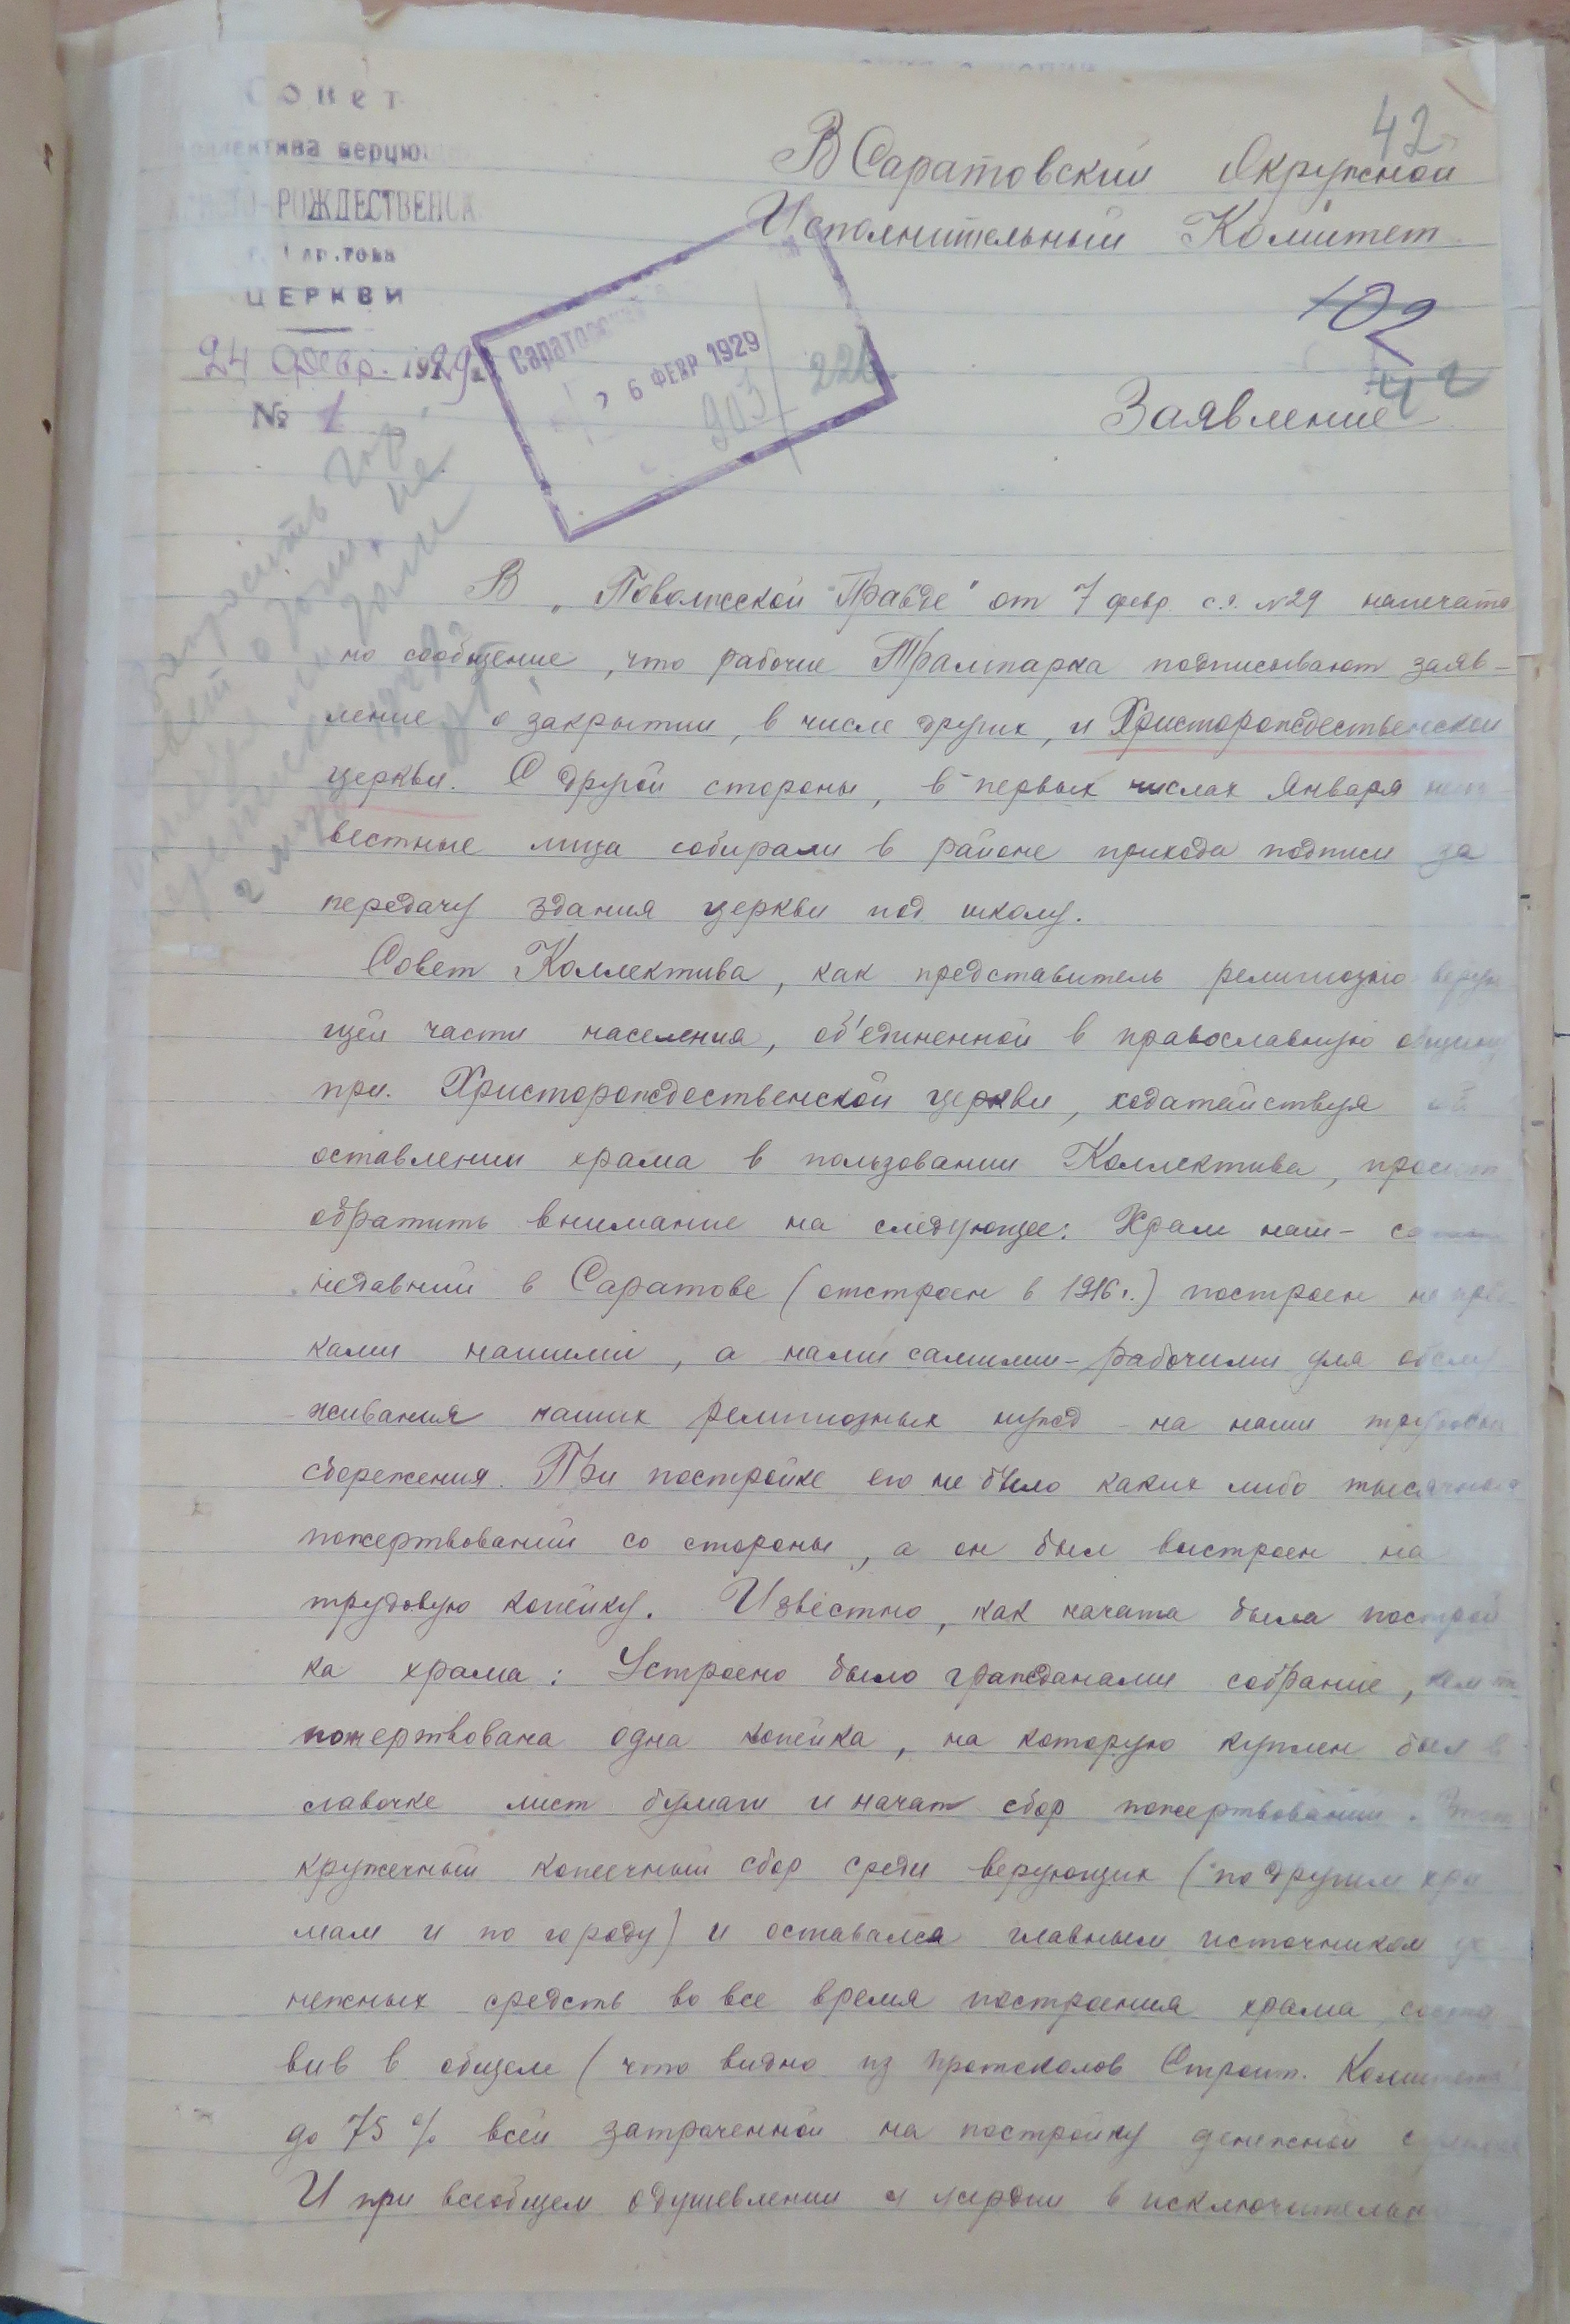 Совет
коллектива верующ
РОЖДЕСТВЕНСК
ЦЕРКВИ
24 Февр. 1929 г.
№ 1
42
В Саратовский Окружной
Исполнительный Комитет
102
42
Саратовский
26 ФЕВР 1929
903
226
Заявление
В „Поволжской Правде" от 7 февр. с.г. №29 напечата
но сообщение, что рабочие Трампарка подписывают заяв-
ление о закрытии, в числе других, и Христорождественской
церкви. С другой стороны, в первых числах Января неиз
вестные лица собирали в районе прихода подписи за
передачу здания церкви под школу.
Совет Коллектива, как представитель религиозно верую
щей части населения, об'единенной в православную общину
при Христорождественской церкви, ходатайствуя об
оставлении храма в пользовании Коллектива, просит
обратить внимание на следующее: Храм наш- самый
недавний в Саратове (отстроен в 1916 г.) построен не пред
ками нашими, а нами самими-рабочими для обслу
живания наших религиозных нужд на наши трудовые
сбережения. При постройке его не было каких либо тысячных
пожертвований со стороны, а он был выстроен на
трудовую копейку. Известно, как начата была построй
ка храма: Устроено было гражданами собрание, кем то
пожертвована одна копейка, на которую куплен был в
лавочке лист бумаги и начат сбор пожертвований. Этот
кружечный копеечный сбор среди верующих (по другим хра
мам и по городу) и оставался главным источником де
нежных средств во все время построения храма, соста
вив в общем (что видно из протоколов Строит. Комитета)
до 75 % всей затраченной на постройку денежной суммы
И при всеобщем одушевлении и усердии в исключительн